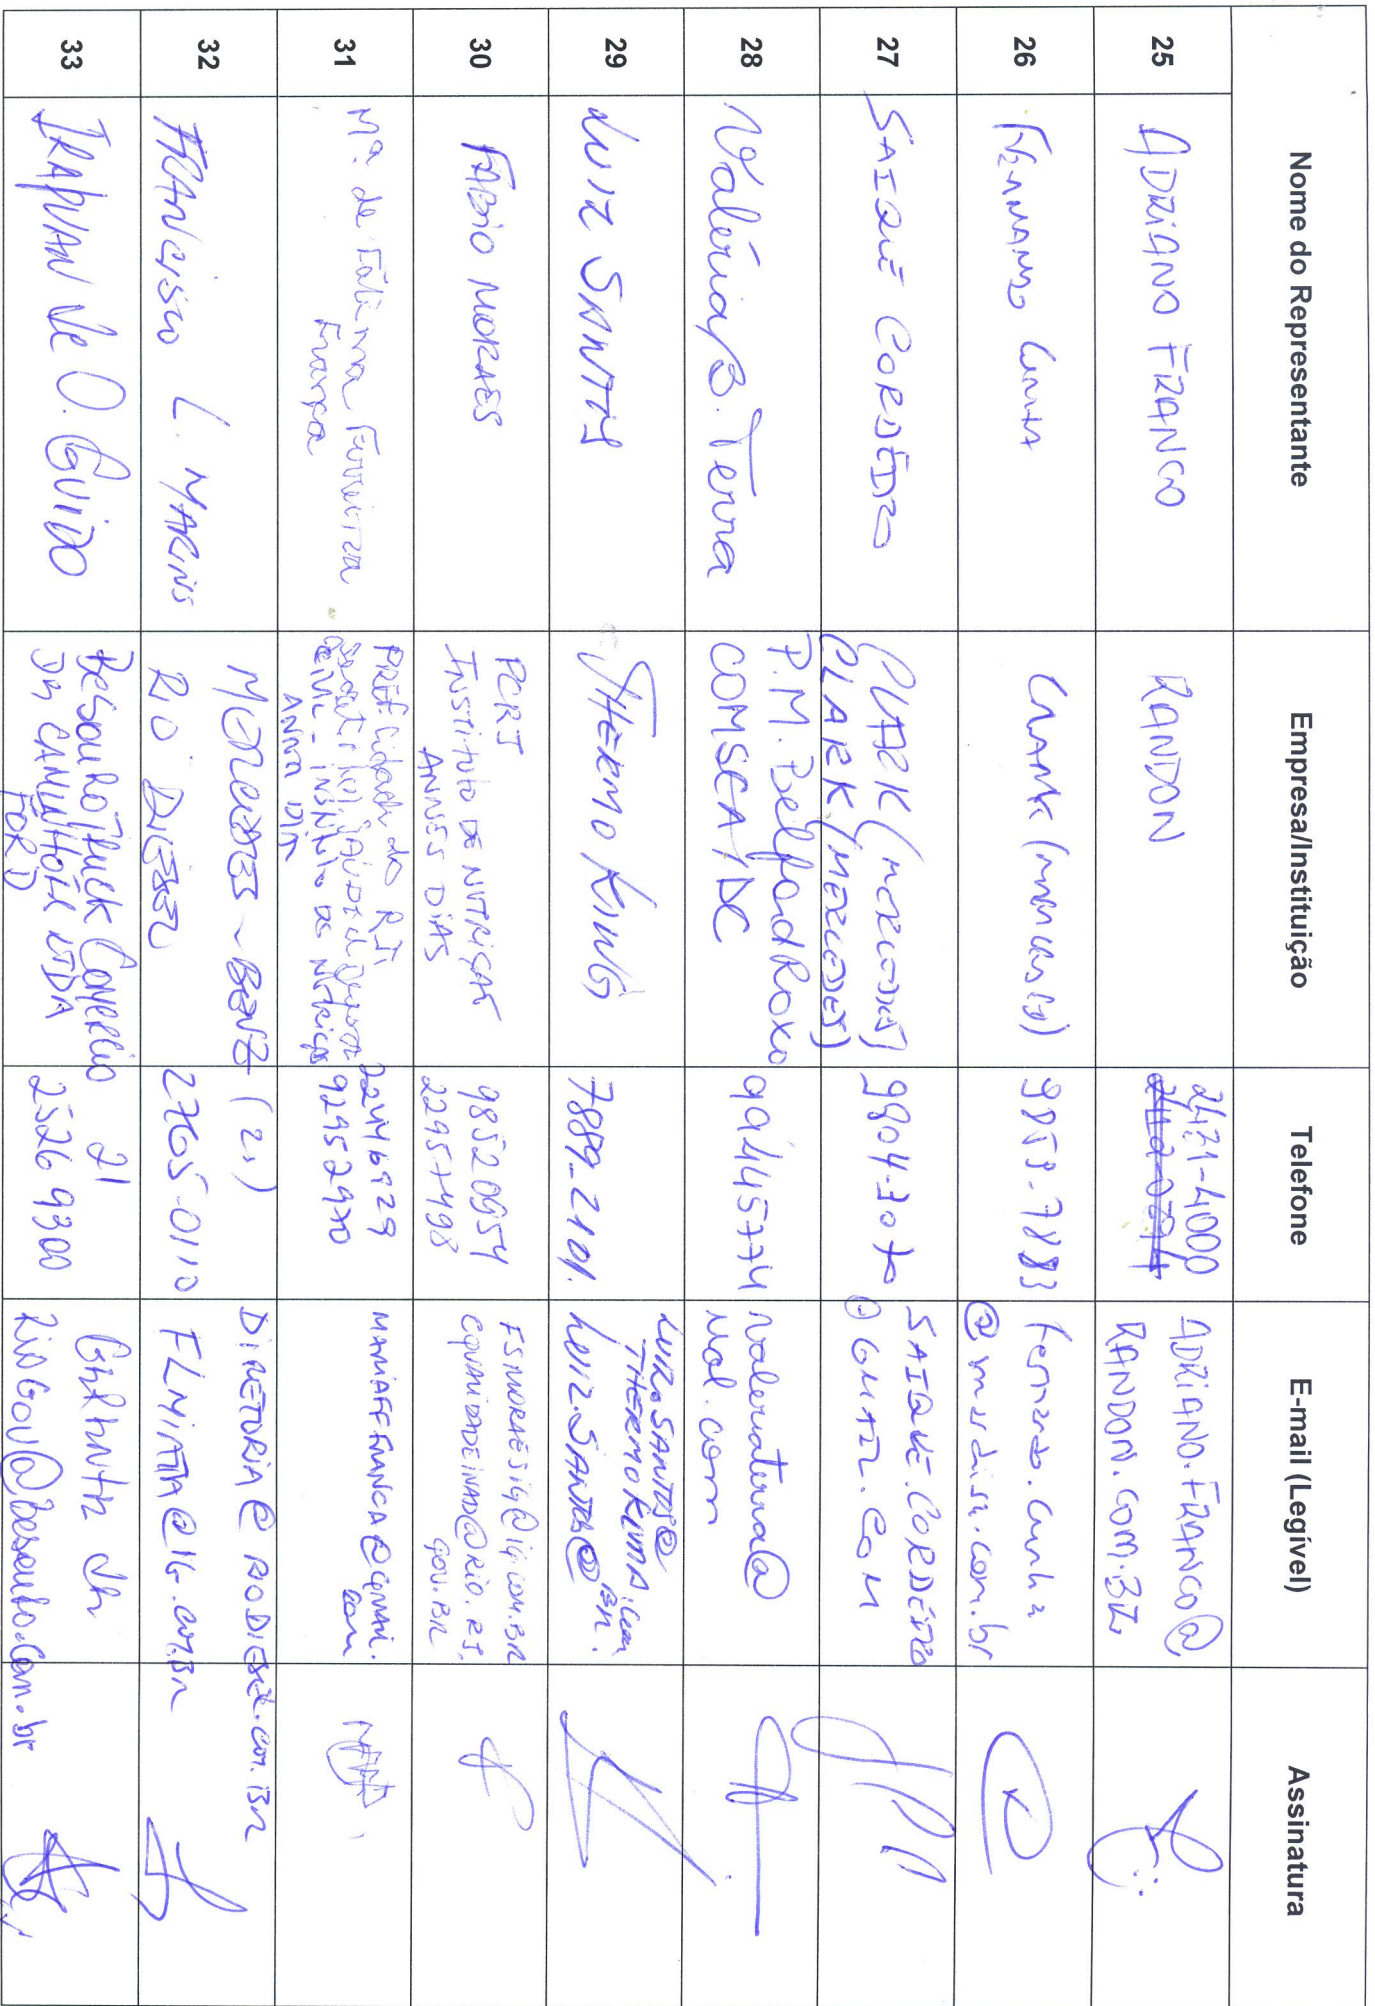 Nome do Representante
Empresa/Instituição
Telefone
E-mail (Legível)
Assinatura
25
ADRIANO FRANCO
RANDON
2471-4000
ADRIANO.FRANCO@
RANDON.COM.BR
26
FERNANDO CUNHA
9853-7883
fernando.cunha
27
SAIQUE CORDEIRO
CLARK (MERCEDES)
CLARK (MERCEDES)
9904-3070
SAIQUE.CORDEIRO
@GMAIL.COM
28
Valéria B. Terra
P.M. Belford Roxo
COMSEA/DC
94445774
valeriaterra@
uol.com
29
LUIZ SANTOS
THERMO KING
7889-2101.
LUIZ.SANTOS@
THERMOKING.com
LUIZ.SANTOS@
30
FABIO MORAES
PCRJ
INSTITUTO DE NUTRIÇÃO
ANNES DIAS
98520954
22957498
FSMORAESIG@IG.COM.BR
EQUINIDADEINAD@RIO.RJ.
GOV.BR
31
Mª de Fátima Ferreira
França
Pref. Cidade do RJ.
INSTITUTO DE NUTRIÇÃO
22446929
92952970
MARIAFFRANCA@GMAIL.
com
32
FRANCISCO L. MARINS
MERCEDES-BENZ
RIO DIESEL
(21)
2765-0110
DIRETORIA@RODIESEL.COM.BR
@IG.COM.BR
33
IRAPUAN de O. GUIDO
Besouro Truck Comercio
De CAMINHÕES LTDA
FORD
21
2526 9300
RioGov@besouro.com.br